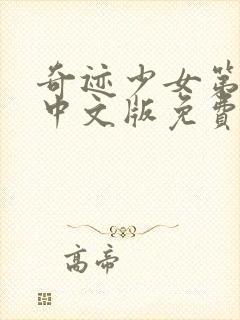 奇迹少女第
中文版免费
高帝